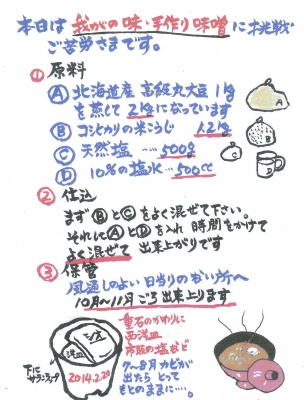 本日は 我がの味・手作り味噌に挑戦
ご苦労さまです。
① 原料
Ⓐ 北海道産 高級丸大豆 1kg
を蒸して 2kgになっています
Ⓑ コシヒカリの米こうじ 1.2kg
Ⓒ 天然塩 ‥‥ 500g
Ⓓ 10%の塩水 ‥‥ 500cc
A
B
C
② 仕込
まずⒷとⒸをよく混ぜて下さい。
それにⒶとⒹを入れ 時間をかけて
よく混ぜて 出来上がりです
③ 保管
風通しのよい 日当りのない所へ
10月〜11月ごろ出来上ります
重石のかわりに
西洋皿
市販の塩など
7〜8月 カビが
出たら とって
もとのままに‥‥。
下に
サランラップ
シオ
洋皿
2014.2.20